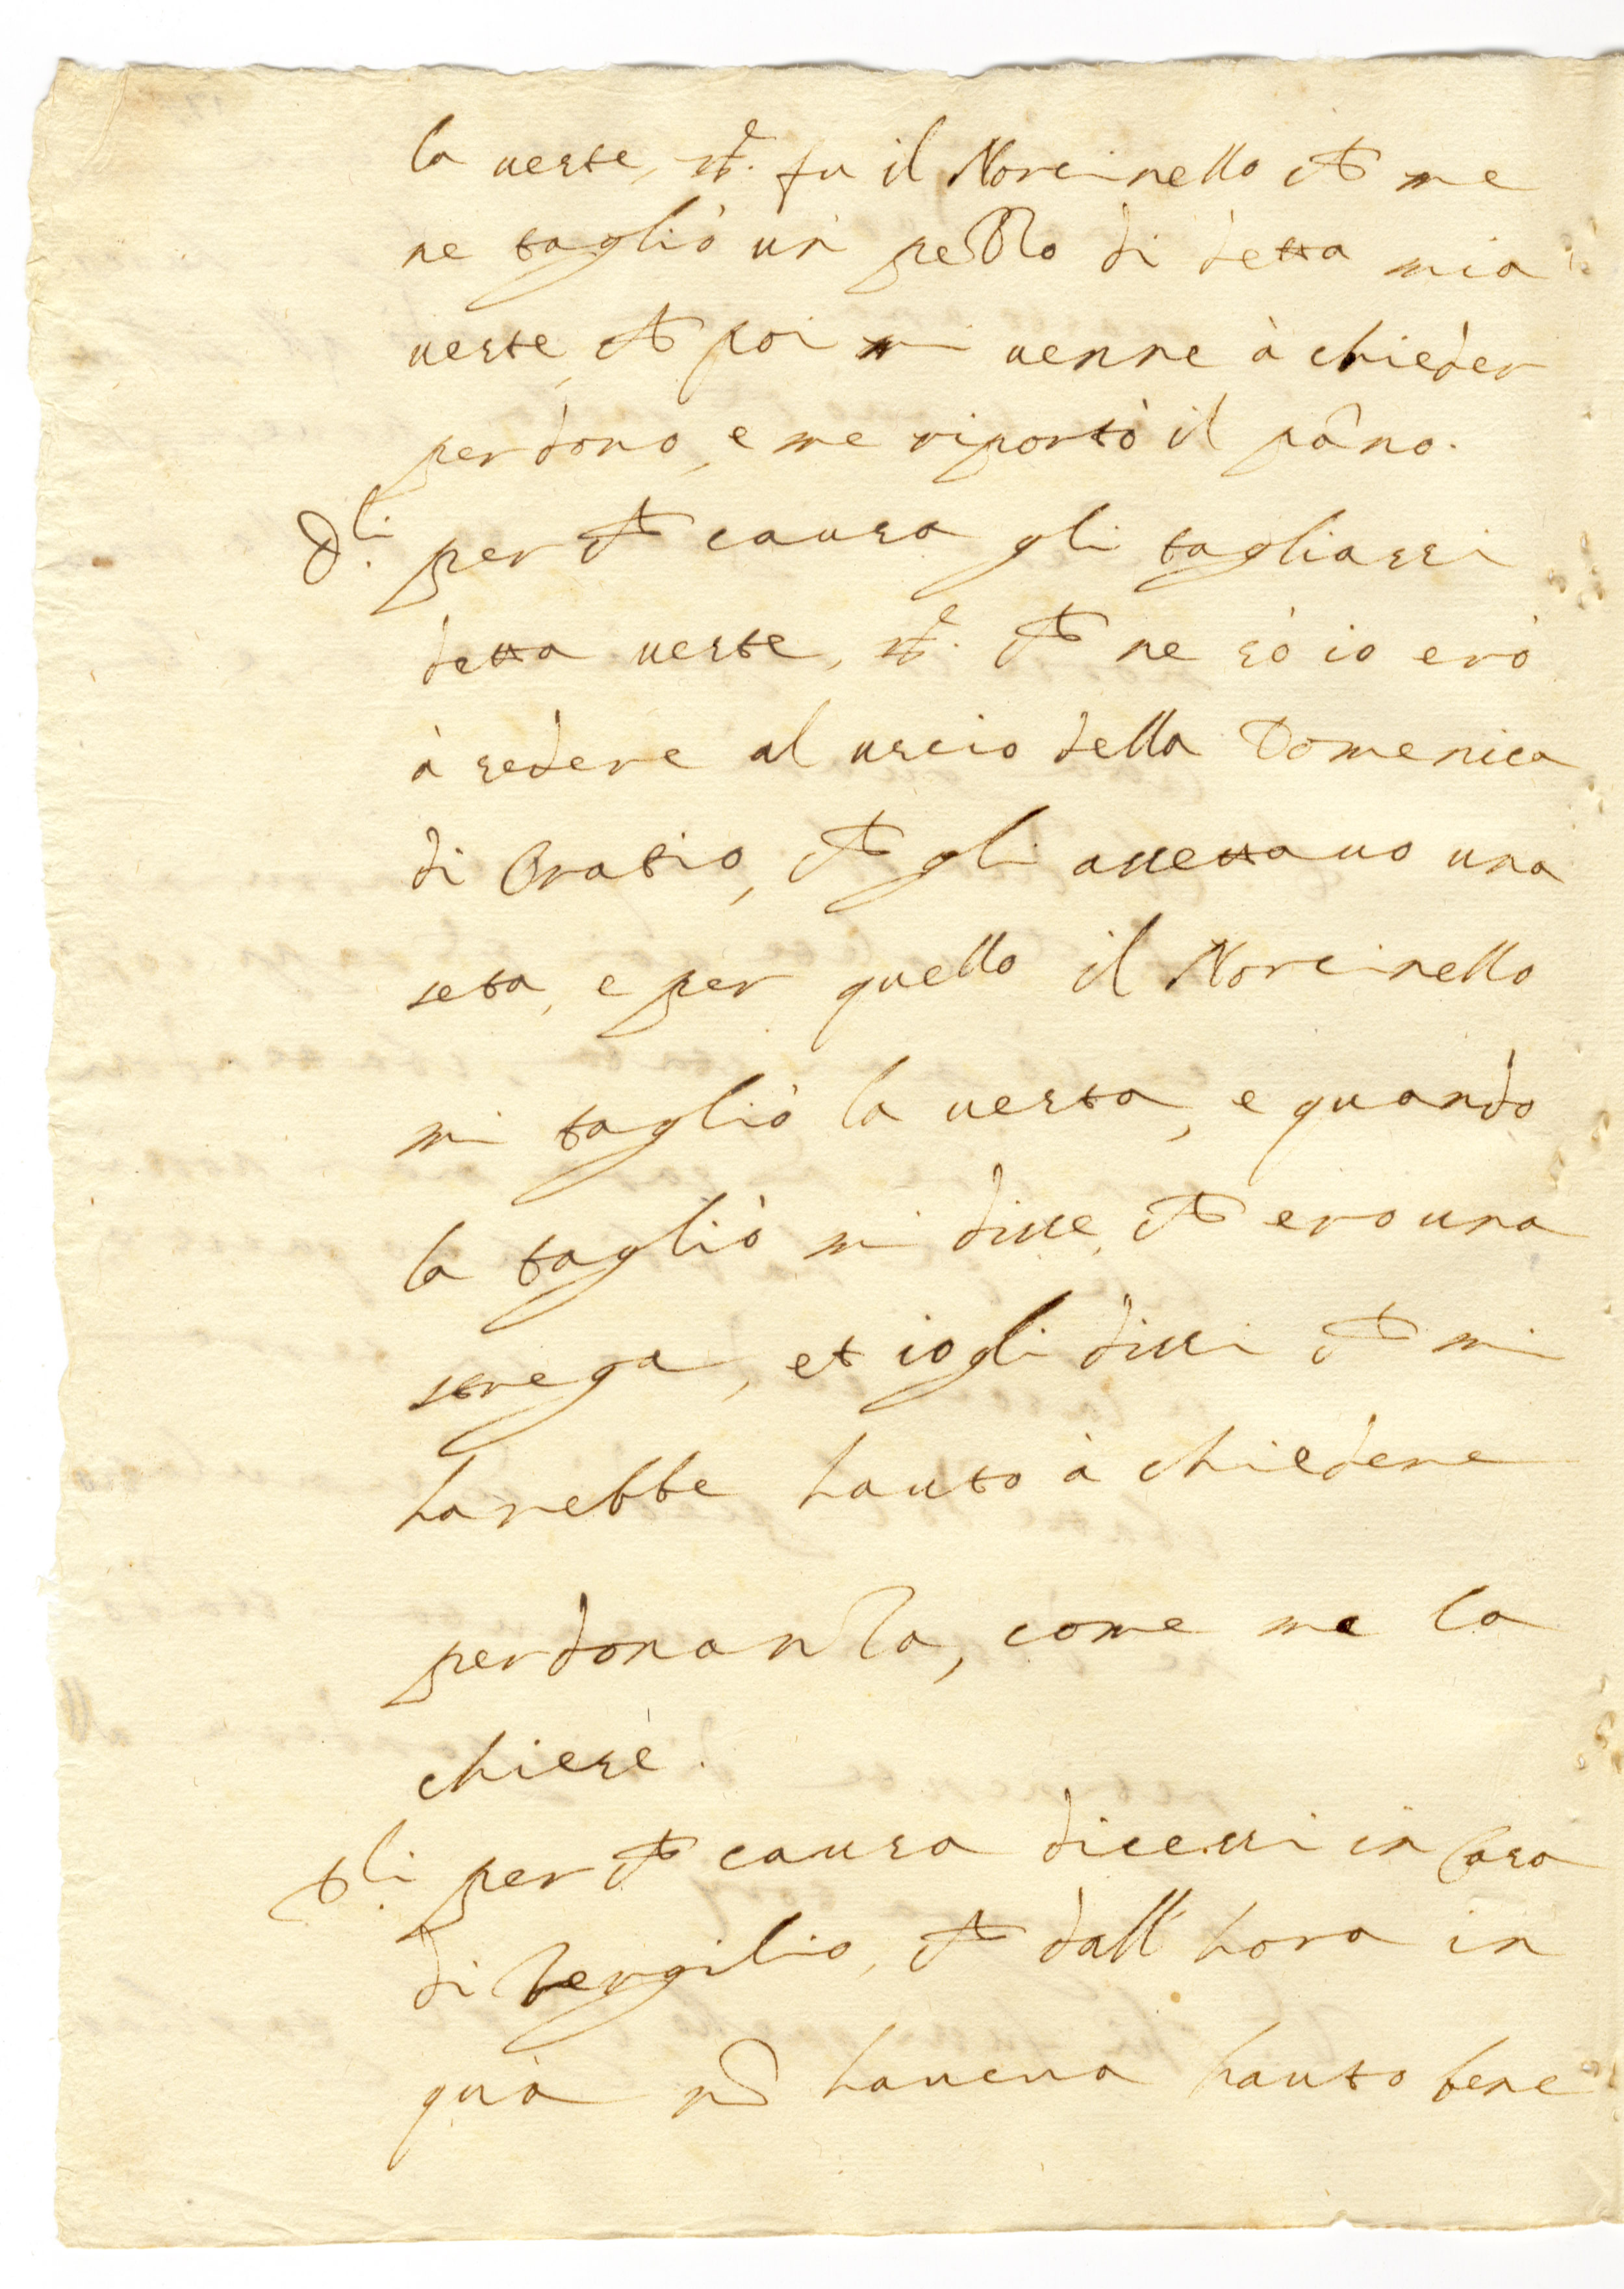 la ueste, Rᵉ. fu il Norcinello che me
ne tagliò un pezzo di detta mia
ueste, che poi mi uenne à chieder
perdono, e me riportò il pãno.
Dˡⁱ. per che causa gli tagliassi
detta ueste, Rᵉ. che ne sò io ero
à sedere al uscio della Domenica
di Oratio, che gli assettauo una
seta, e per quello il Norcinello
mi tagliò la uesta, e quando
la tagliò mi disse, che ero una
strega, et io gli dissi che mi
harebbe hauto à chiedere
perdonanza, come me la
chiese.
Dˡⁱ. per che causa dicessi in Casa
di Vergilio, che dall' hora in
quà nõ haueua hauto bene